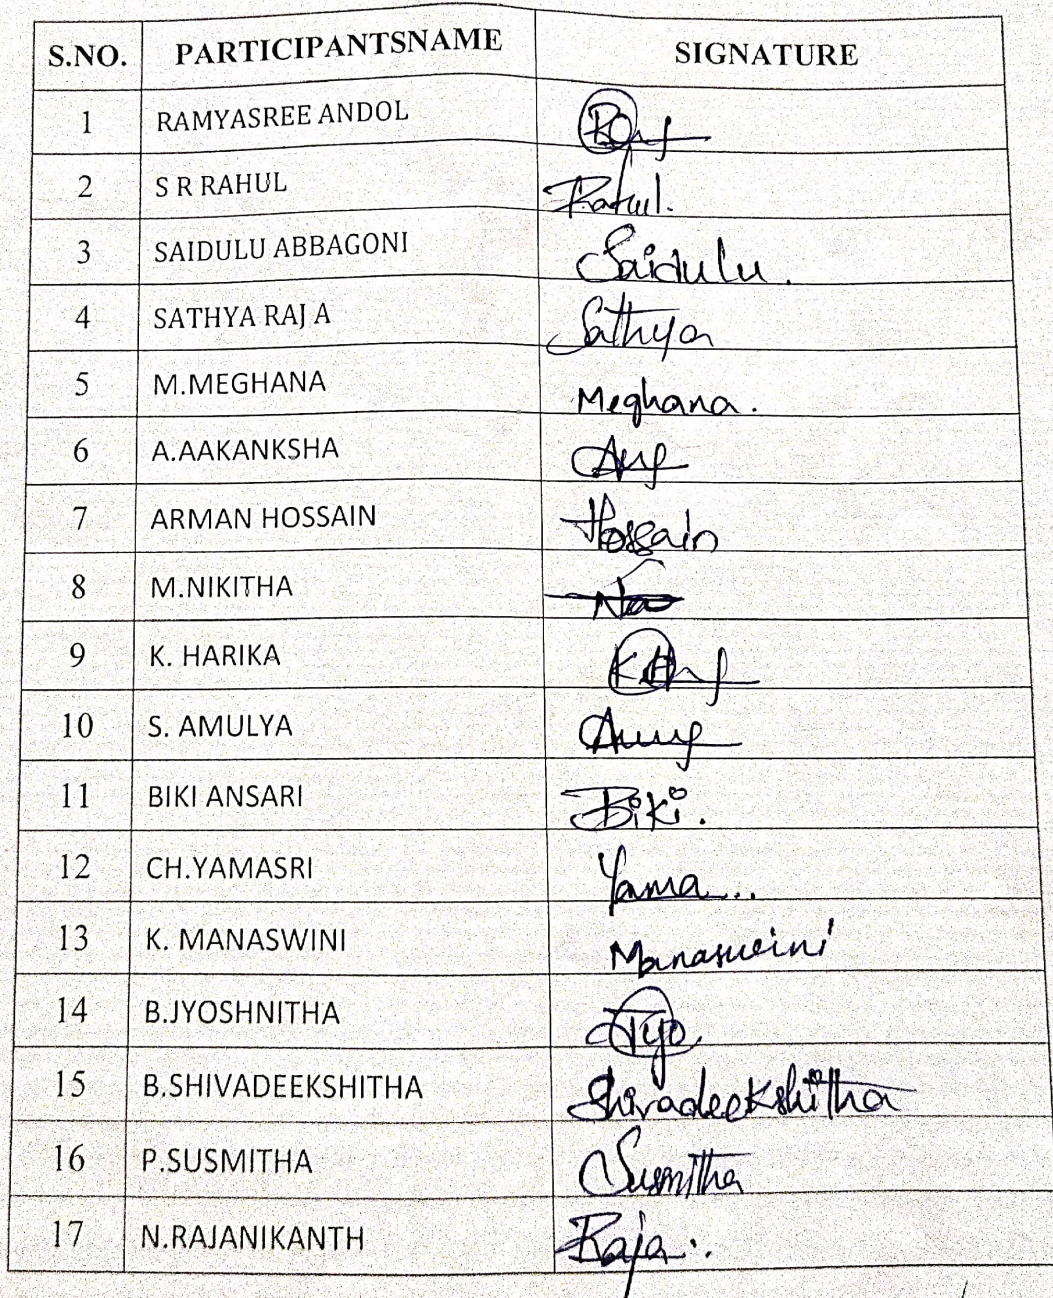 S.NO. PARTICIPANTSNAME SIGNATURE
1 RAMYASREE ANDOL
2 S R RAHUL Rahul.
3 SAIDULU ABBAGONI Saidulu.
4 SATHYA RAJ A Sathya
5 M.MEGHANA Meghana.
6 A.AAKANKSHA
7 ARMAN HOSSAIN Hossain
8 M.NIKITHA
9 K. HARIKA
10 S. AMULYA
11 BIKI ANSARI Biki.
12 CH.YAMASRI Yama..
13 K. MANASWINI Manaswini
14 B.JYOSHNITHA Jyo.
15 B.SHIVADEEKSHITHA Shivadeekshitha
16 P.SUSMITHA Susmitha
17 N.RAJANIKANTH Raja..